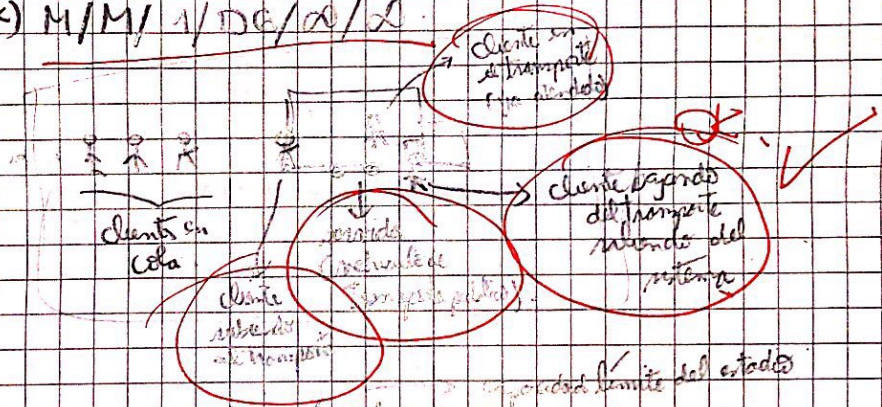 c) M/M/1/DG/∞/∞
cliente en
el transporte
(ya atendido)
OK
clientes en
cola
cliente
subiendo
al transporte
servido
(vehículo de
transporte público)
cliente bajando
del transporte
saliendo del
sistema
capacidad límite del estadio